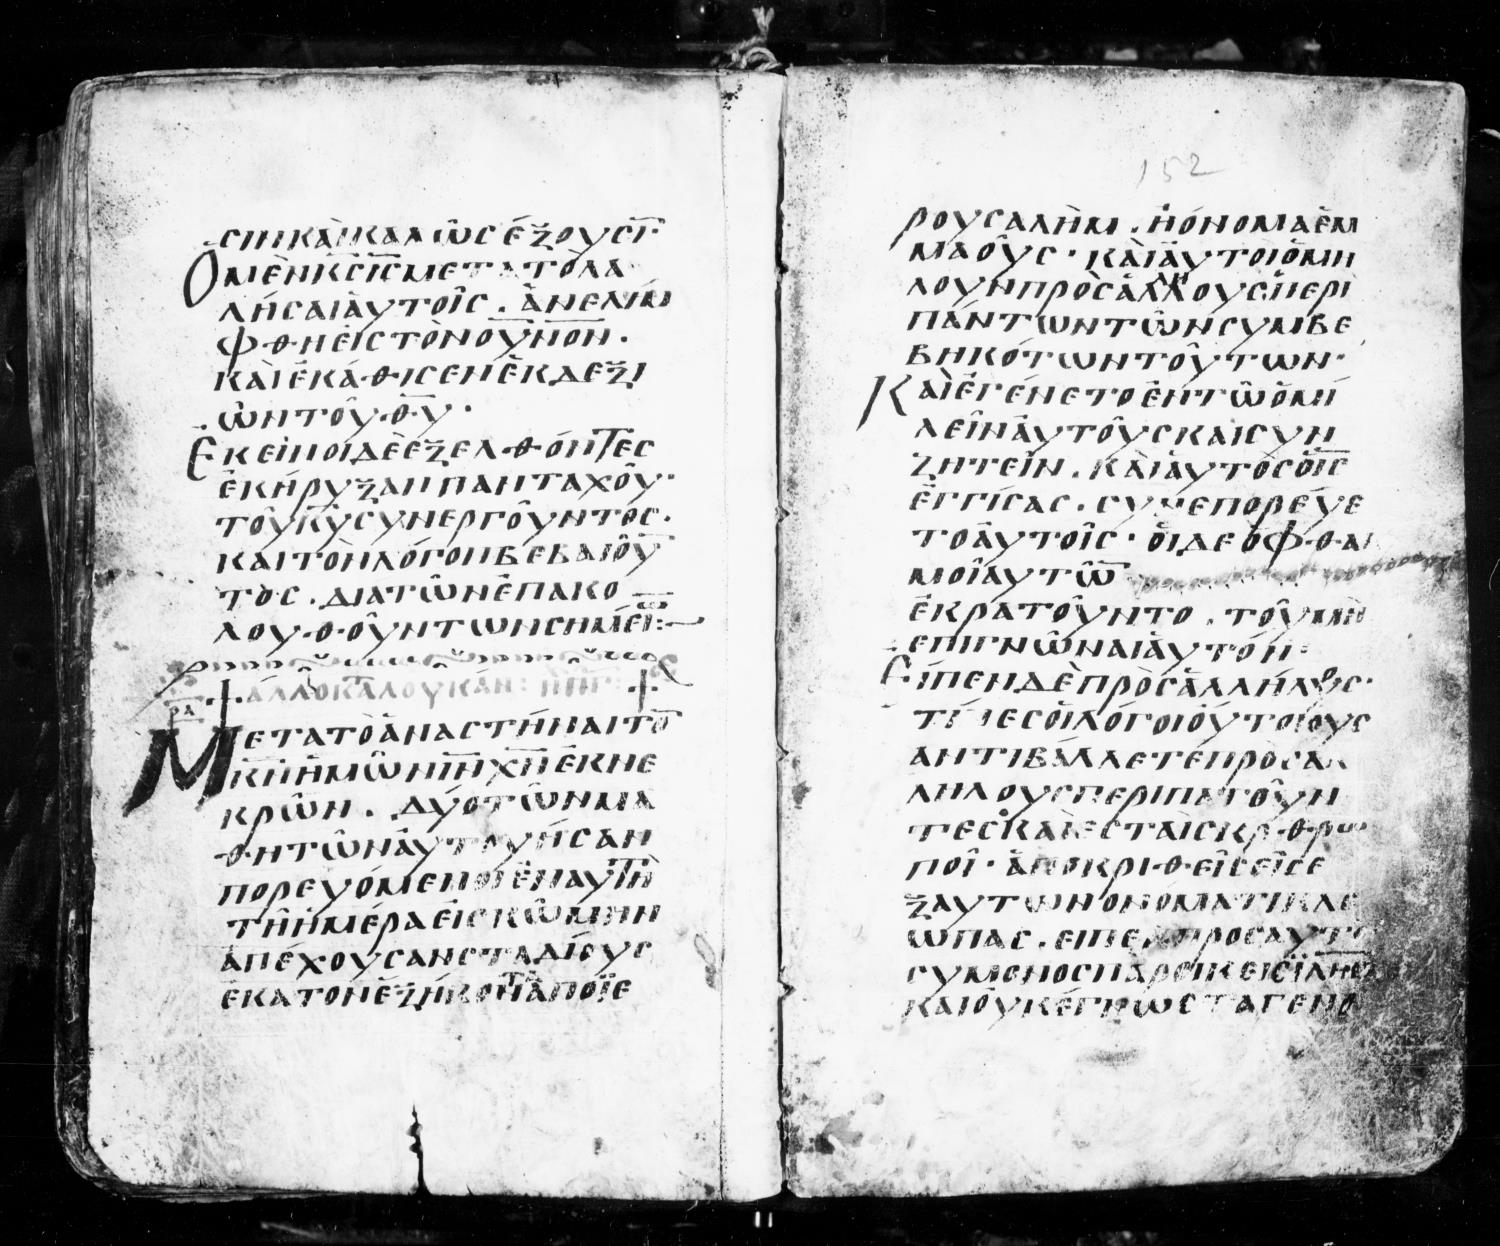 ϹΙΝΚΑῚΚΑΛῶϹἝΞΟΥϹΙ̅
ὉΜῈΝΚ̅Ϲ̅Ι̅Ϲ̅ΜΕΤΑΤΟΛΑ
ΛΗ͂ϹΑΙἈΥΤΟΙ͂Ϲ . ἈΝΕΛΉΜ
ΦΘΗἘΙϹΤῸΝΟΥ̅Ν̅Ο̅Ν .
ΚΑῚἘΚΆΘΙϹΕΝἘΚΔΕΞΙ
ῶΝΤΟΥ͂Θ̅Υ̅ ·
ἘΚΕΙ͂ΝΟΙΔῈἘΞΕΛΘΌΝΤΕϹ
ἘΚΉΡΥΞΑΝΠΑΝΤΑΧΟΥ͂ ·
ΤΟΥ͂Κ̅Υ̅ϹΥΝΕΡΓΟΥ͂ΝΤΟϹ .
ΚΑΙΤῸΝΛΌΓΟΝΒΕΒΑΙΟΥ͂
ΤΟϹ . ΔΙΑΤῶΝἘΠΑΚΟ
ΛΟΥΘΟΎΝΤΩΝϹΗΜΕΊ̅ω̅:
ἈΛΛΟΚΑΤΑΛΟΥΚΑΝ:
ΡΑ ΜΕΤΑΤῸἈΝΑϹΤΗ͂ΝΑΙΤΟ̅
Κ̅Ν̅ἩΜῶΝΙ̅Ν̅Χ̅Ν̅ἘΚΝΕ
ΚΡῶΝ . ΔΎΟΤῶΝΜΑ
ΘΗΤῶΝἈΥΤΟΥ͂ΗϹΑΝ
ΠΟΡΕΥΌΜΕΝΟΙἘΝΑΥΤΗ͂
ΤΗ͂ἩΜΈΡΑΕἸϹΚῶΜΗΝ
ἈΠΈΧΟΥϹΑΝϹΤΑΔΊΟΥϹ
ἙΚΑΤῸΝἙΞΉΚΟΝΤΑἈΠΟΪΕ
152
ΡΟΥϹΑΛῊΜ . ἩΌΝΟΜΑἘΜ
ΜΑΟΎϹ · ΚΑῚἈΥΤΟΙὉΜΗ
ΛΟΥΝΠΡῸϹἈΛΛΗΛΟΥϹΠΕΡῚ
ΠΆΝΤΩΝΤῶΝϹΥΜΒΕ
ΒΗΚΌΤΩΝΤΟΎΤΩΝ ·
ΚΑῚἘΓΈΝΕΤΟἘΝΤῶὉΜΙ
ΛΕΙ͂ΝἈΥΤΟῪϹΚΑῚϹΥΝ
ΖΗΤΕΙ͂Ν . ΚΑῚἈΥΤῸϹὉΙ̅Ϲ̅
ἘΓΓΊϹΑϹ . ϹΥΝΕΠΟΡΕΎΕ
ΤΟἈΥΤΟΙ͂Ϲ · ὉΙΔΕΟΦΘΑΛ
ΜΟΙἈΥΤῶ̅
ἘΚΡΑΤΟΥ͂ΝΤΟ . ΤΟΥ͂ΜῊ
ἘΠΙΓΝῶΝΑΙἈΥΤΌΝ:
ΕἸΠΕΝΔῈΠΡῸϹἈΛΛΉΛΟΥϹ ·
ΤΊΝΕϹὉΙΛΌΓΟΙὉΥΤΟΙΟΥϹ
ΑΝΤΙΒΆΛΛΕΤΕΠΡῸϹΑΛ
ΛΗΛΟΥϹΠΕΡΙΠΑΤΟΥ͂Ν
ΤΕϹΚΑῚἘϹΤΑῚϹΚΥΘΡω
ΠΟΙ · ἈΠΟΚΡΙΘΕῚϹΕἸϹἘ
ΞΑΥΤΩΝΟΝΌΜΑΤΙΚΛΕ
ΩΠΑϹ . ΕΙΠΕΝΠΡΟϹΑΥΤῸ
ϹΥΜΟΝΟϹΠΑΡΟΙΚΕΙϹΪ̅Λ̅Η̅Μ̅
ΚΑΙΟΎΚΈΓΝΩϹΤΑΓΕΝΟ